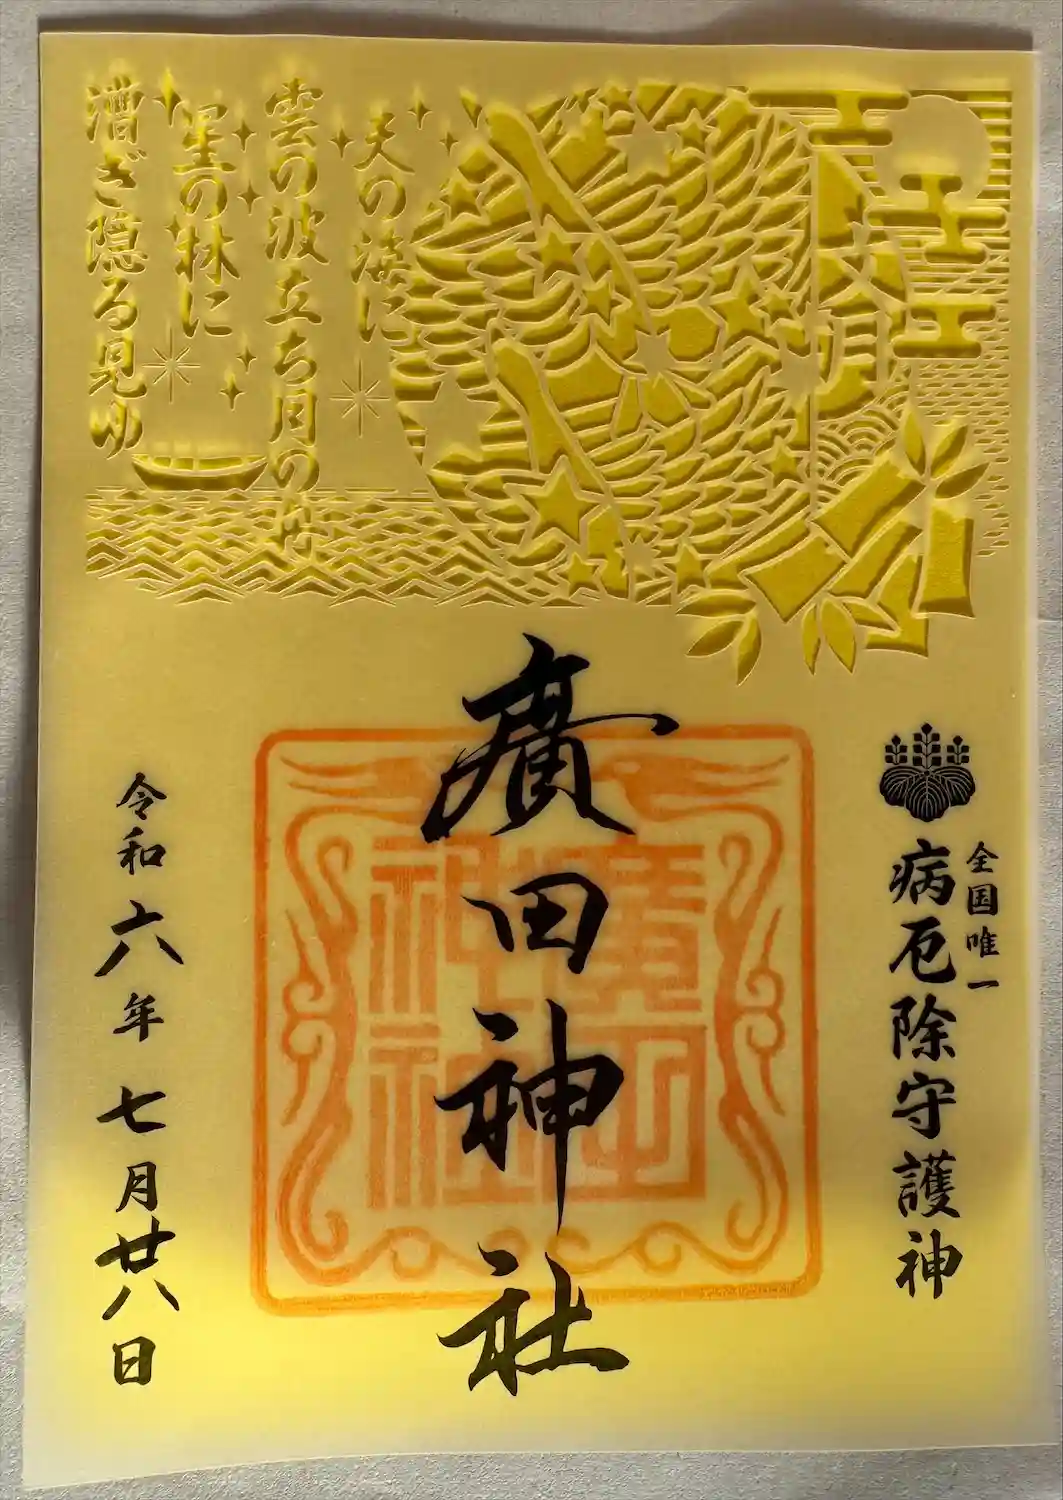 文月
天の海に
雲の波立ち月の舟
星の林に
漕ぎ隠る見ゆ
全国唯一
病厄除守護神
廣田神社
廣田
神社
令和六年七月廿八日